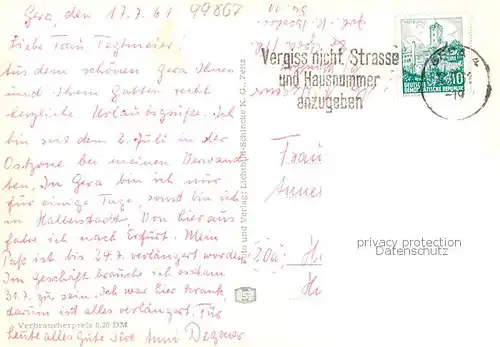 Gera, den 17.7.61
99867
Liebe Frau Tegtmeier!
Aus dem schönen Gera Ihnen
und Ihrem Gatten recht
herzliche Urlaubsgrüße. Ich
bin seit dem 2. Juli in der
Ostzone bei meinen Verwand
ten. In Gera bin ich nur
für einige Tage, sonst bin ich
in Halberstadt. Von hier aus
fahre ich nach Erfurt. Mein
Paß ist bis 24.7. verlängert worden
Im Geschäft brauche ich erst am
31.7. zu sein. Ich war hier krank
darum ist alles verlängert. Für
heute alles Gute Ihre Anni Degener
Verbraucherpreis 0,20 DM
Foto und Verlag: Lichtbild-Schincke K. G., Zeitz
Vergiss nicht Strasse
und Hausnummer
anzugeben
10
DEUTSCHE
DEMOKRATISCHE REPUBLIK
-19
Frau
20a
privacy protection
Datenschutz